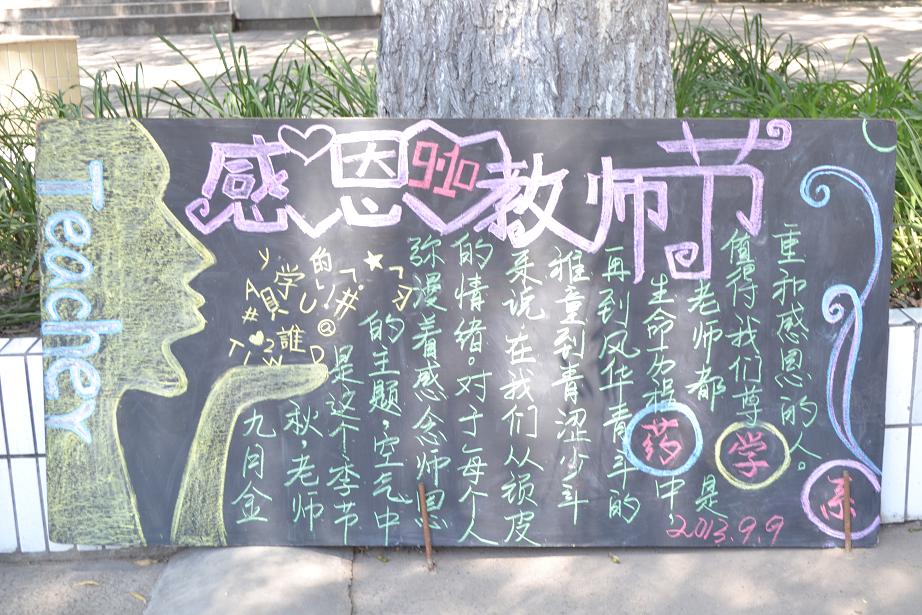 感恩9.10教师节
Teacher
九月金
秋，老师
是这个季节
的主题，空气中
弥漫着感念师恩
的情绪。对于每个人
来说，在我们从顽皮
稚童到青涩少年
再到风华青年的
生命历程中，
老师都是
值得我们尊
重和感恩的人。
药学系
2013.9.9